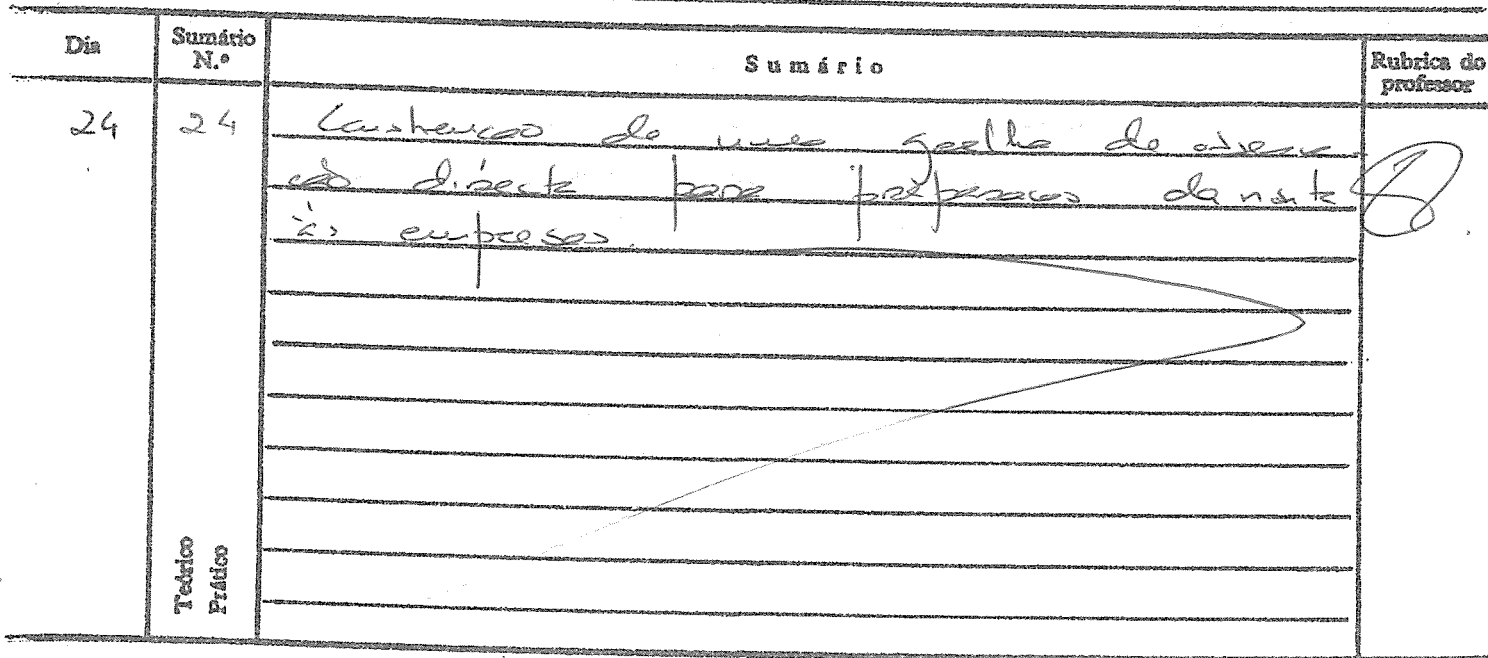 Dia
Sumário N.º
Sumário
Rubrica do professor
24
24
Construção de uma grelha de observa
ção directa para preparação da visita
às empresas.
Teórico
Prático